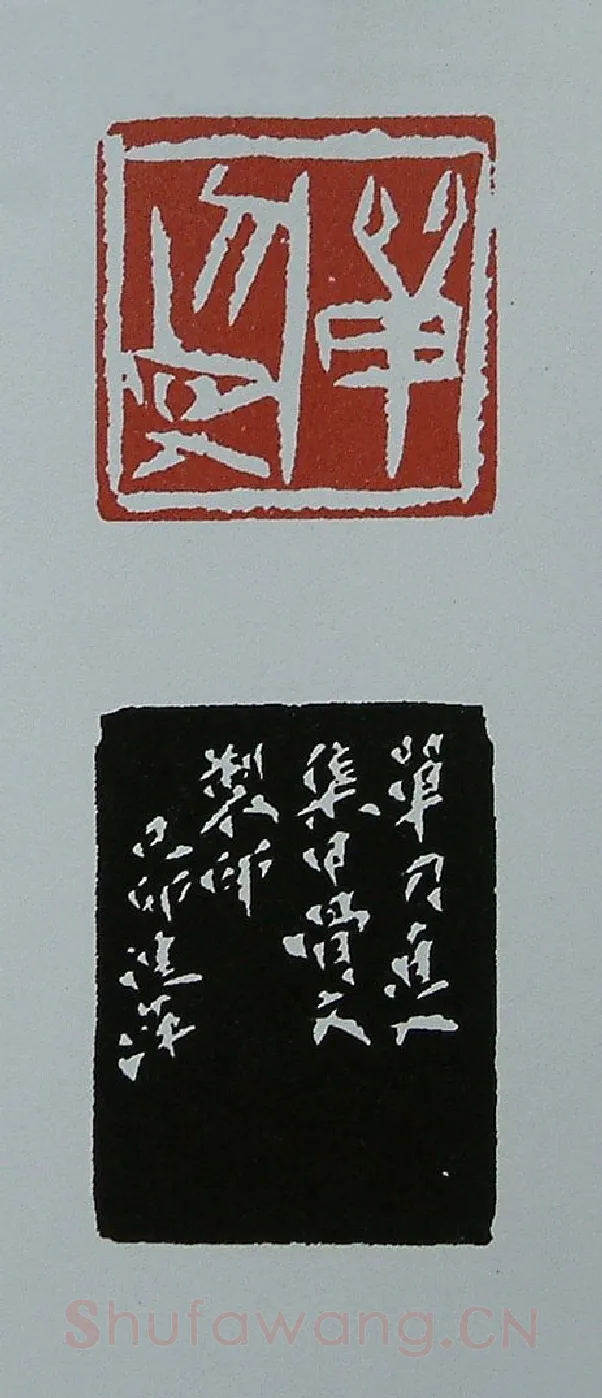 單刀直入
單刀直入
集甲骨文
製印
己卯
Shufawang.CN